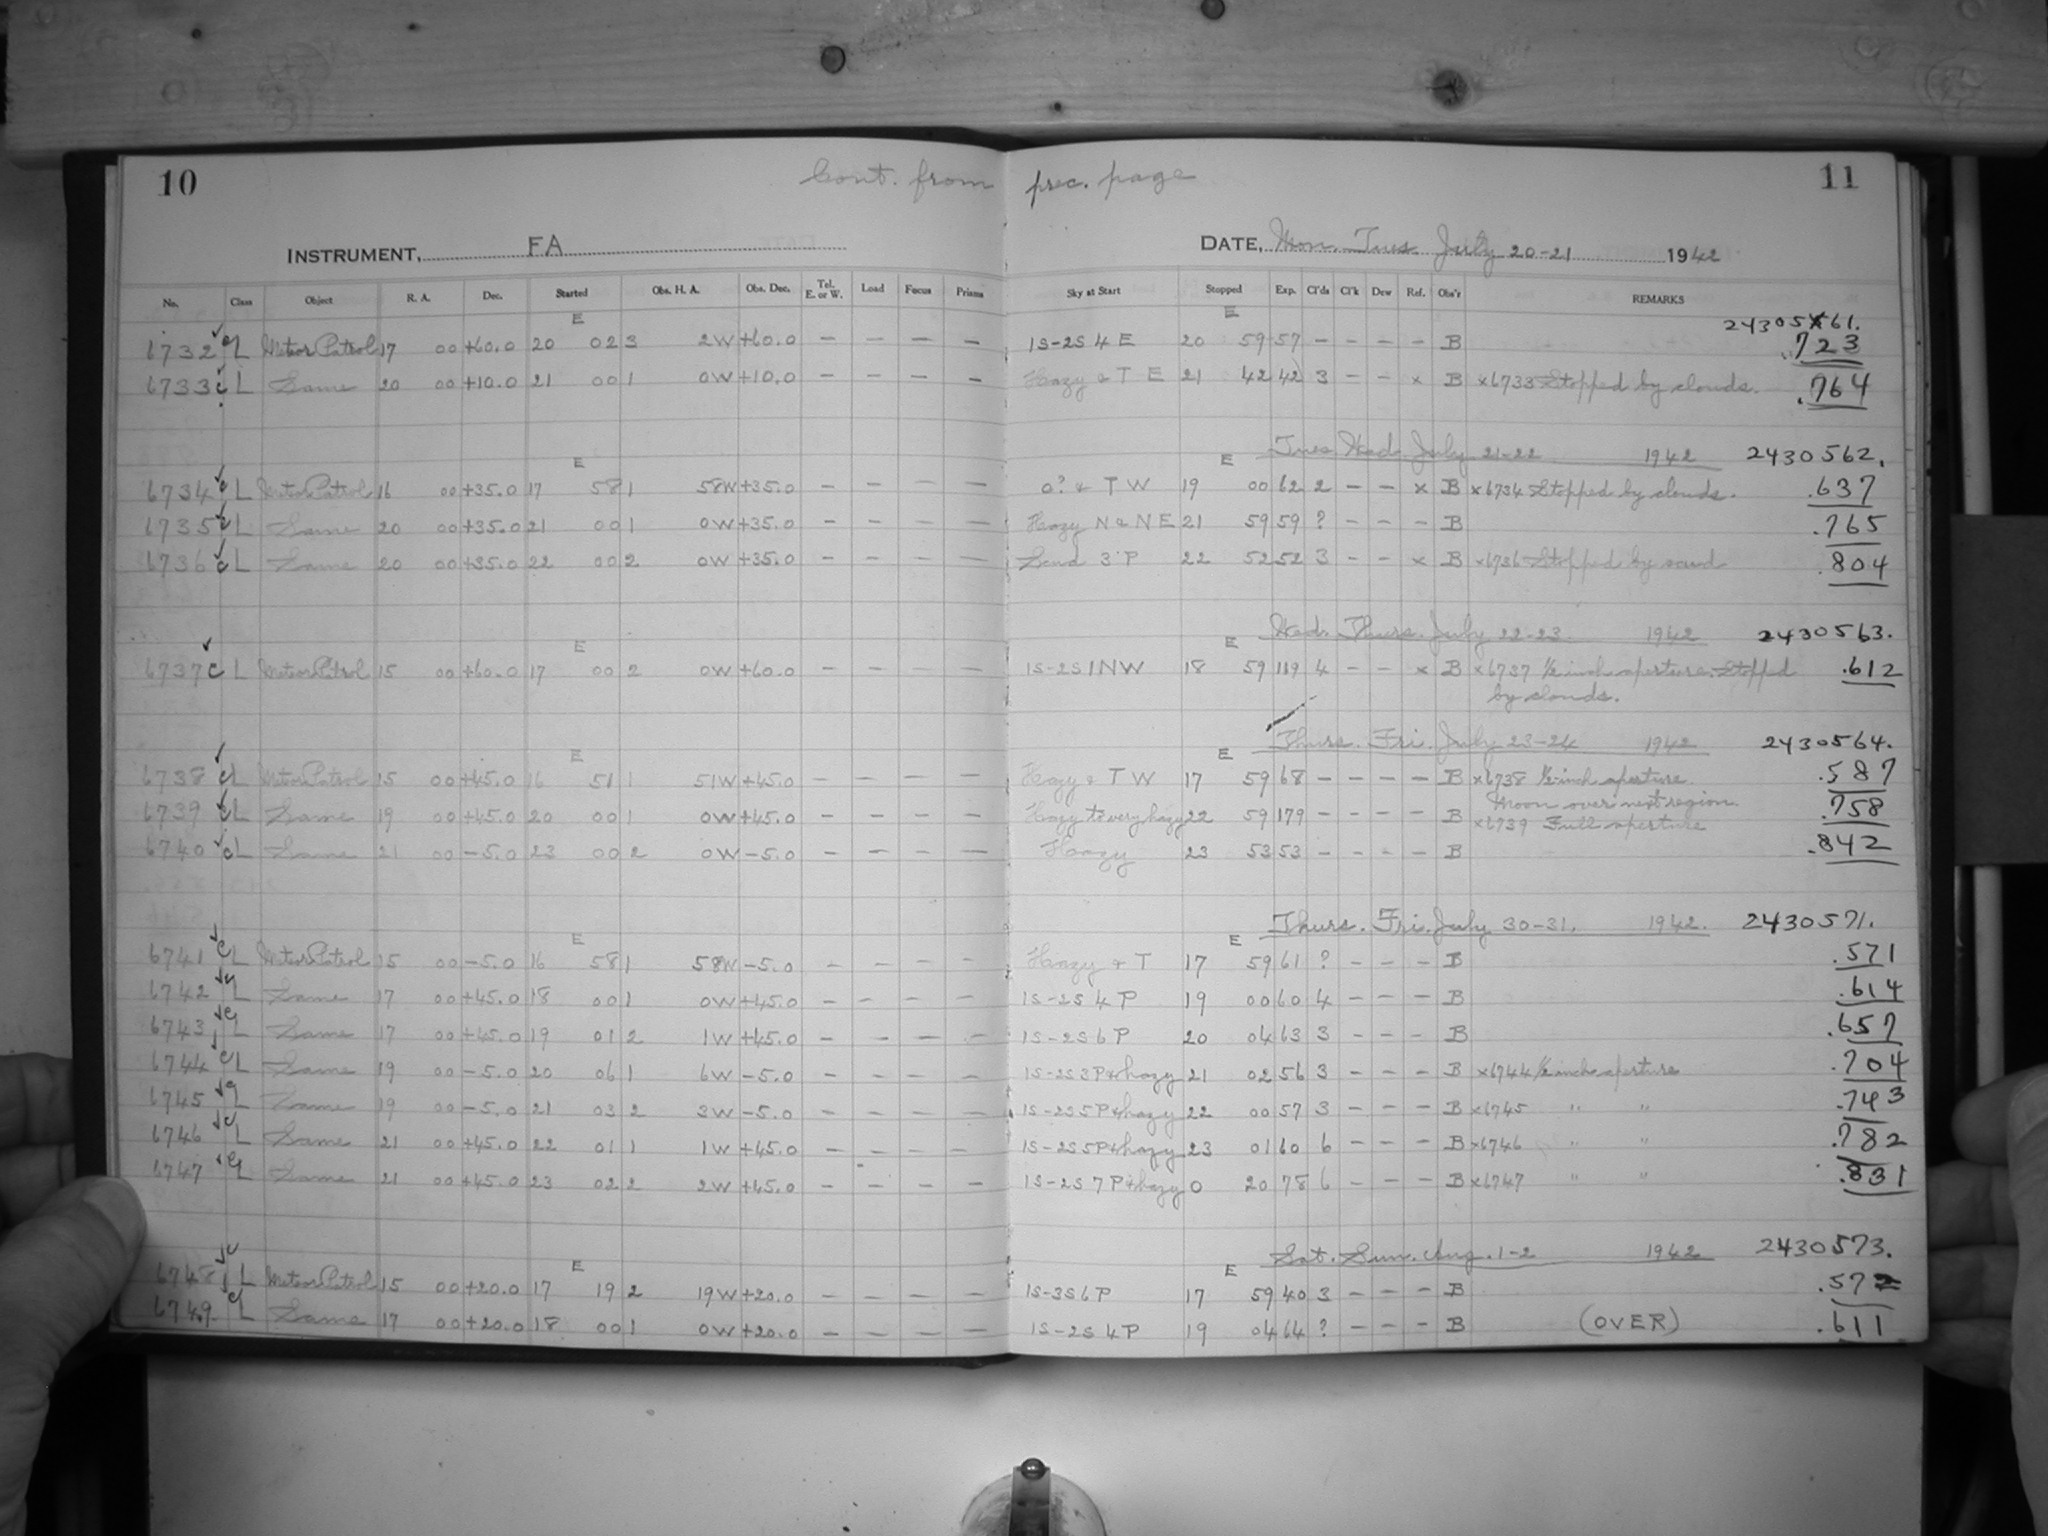 10 Cont. from prec. page 11
INSTRUMENT, FA DATE, Mon. Tues July 20-21 1942
No. Class Object R. A. Dec. Started Obs. H. A. Obs. Dec. Tel. E. or W. Load Focus Prisms Sky at Start Stopped Exp. Cl'ds Cl'k Dew Ref. Obs'r REMARKS
E E 2430561.
6732 c L Meteor Patrol 17 00 +60.0 20 02 3 2W +60.0 — — — — 1S-2S 4 E 20 59 57 — — — — B .723
6733 c L Same 20 00 +10.0 21 00 1 0W +10.0 — — — — Hazy & T E 21 42 42 3 — — x B x6733 Stopped by clouds. .764
E E Tues Wed. July 21-22 1942 2430562.
6734 c L Meteor Patrol 16 00 +35.0 17 58 1 58W +35.0 — — — — 0? & T W 19 00 62 2 — — x B x6734 Stopped by clouds. .637
6735 c L Same 20 00 +35.0 21 00 1 0W +35.0 — — — — Hazy N & N E 21 59 59 ? — — — B .765
6736 c L Same 20 00 +35.0 22 00 2 0W +35.0 — — — — Scud 3 P 22 52 52 3 — — x B x6736 Stopped by scud .804
E E Wed. Thurs. July 22-23 1942 2430563.
6737 c L Meteor Patrol 15 00 +60.0 17 00 2 0W +60.0 — — — — 1S-2S 1 NW 18 59 119 4 — — x B x6737 ½ inch aperture. Stopped .612
by clouds.
E E Thurs. Fri. July 23-24 1942 2430564.
6738 c L Meteor Patrol 15 00 +45.0 16 51 1 51W +45.0 — — — — Hazy & T W 17 59 68 — — — — B x6738 ½-inch aperture. .587
Moon over next region.
6739 c L Same 19 00 +45.0 20 00 1 0W +45.0 — — — — Hazy to very hazy 22 59 179 — — — — B x6739 Full aperture .758
6740 c L Same 21 00 -5.0 23 00 2 0W -5.0 — — — — Hazy 23 53 53 — — — — B .842
E E Thurs. Fri. July 30-31. 1942. 2430571.
6741 c L Meteor Patrol 15 00 -5.0 16 58 1 58W -5.0 — — — — Hazy & T 17 59 61 ? — — — B .571
6742 c L Same 17 00 +45.0 18 00 1 0W +45.0 — — — — 1S-2S 4 P 19 00 60 4 — — — B .614
6743 c L Same 17 00 +45.0 19 01 2 1W +45.0 — — — — 1S-2S 6 P 20 04 63 3 — — — B .657
6744 c L Same 19 00 -5.0 20 06 1 6W -5.0 — — — — 1S-2S 3 P & hazy 21 02 56 3 — — — B x6744 ½ inch aperture .704
6745 c L Same 19 00 -5.0 21 03 2 3W -5.0 — — — — 1S-2S 5 P & hazy 22 00 57 3 — — — B x6745 " " .743
6746 c L Same 21 00 +45.0 22 01 1 1W +45.0 — — — — 1S-2S 5 P & hazy 23 01 60 6 — — — B x6746 " " .782
6747 c L Same 21 00 +45.0 23 02 2 2W +45.0 — — — — 1S-2S 7 P & hazy 0 20 78 6 — — — B x6747 " " .831
E E Sat. Sun. Aug. 1-2 1942 2430573.
6748 c L Meteor Patrol 15 00 +20.0 17 19 2 19W +20.0 — — — — 1S-3S 6 P 17 59 40 3 — — — B .572
6749 c L Same 17 00 +20.0 18 00 1 0W +20.0 — — — — 1S-2S 4 P 19 04 64 ? — — — B (OVER) .611